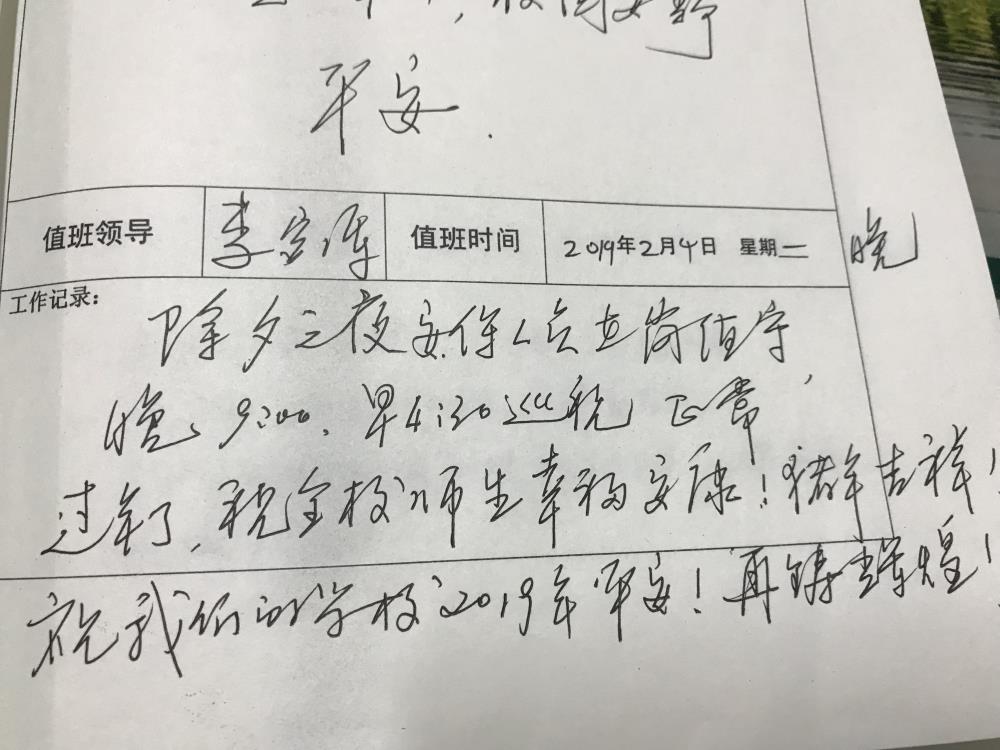 校园安静
平安.
值班领导 李宝 值班时间 2019年2月4日 星期二 晚
工作记录:
除夕之夜安保人员在岗值守,
晚9:00.早4:30巡视正常
过年了,祝全校师生幸福安康!猪年吉祥!
祝我们的学校2019年平安!再铸辉煌!